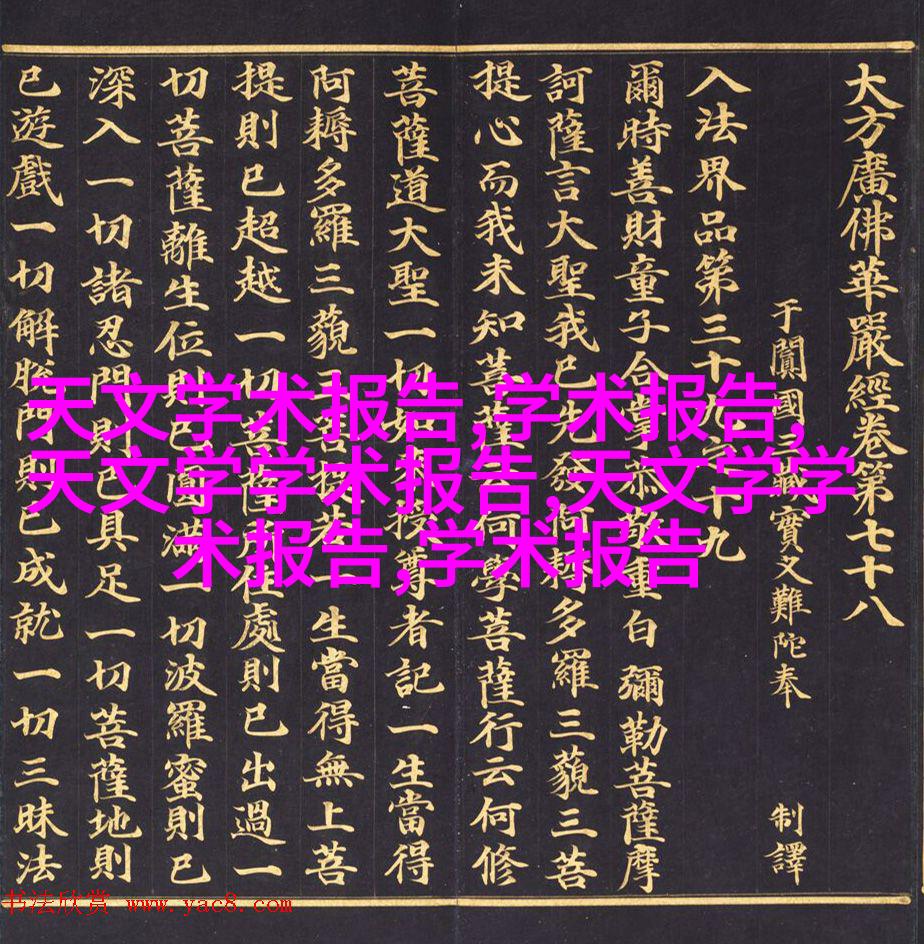 大方廣佛華嚴經卷第七十八
于闐國三藏實叉難陀奉 制譯
入法界品第三十九之十九
爾時善財童子合掌恭敬重白彌勒菩薩摩
訶薩言大聖我已先發阿耨多羅三藐三菩
提心而我未知菩薩云何學菩薩行云何修
菩薩道大聖一切如來授尊者記一生當得
阿耨多羅三藐三菩提若一生當得無上菩
提則已超越一切菩薩所住處則已出過一
切菩薩離生位則已圓滿一切波羅蜜則已
深入一切諸忍門則已具足一切菩薩地則
已遊戲一切解脫門則已成就一切三昧法
天文学术报告,学术报告,
天文学学术报告,天文学学
术报告,学术报告
书法欣赏 www.yac8.com